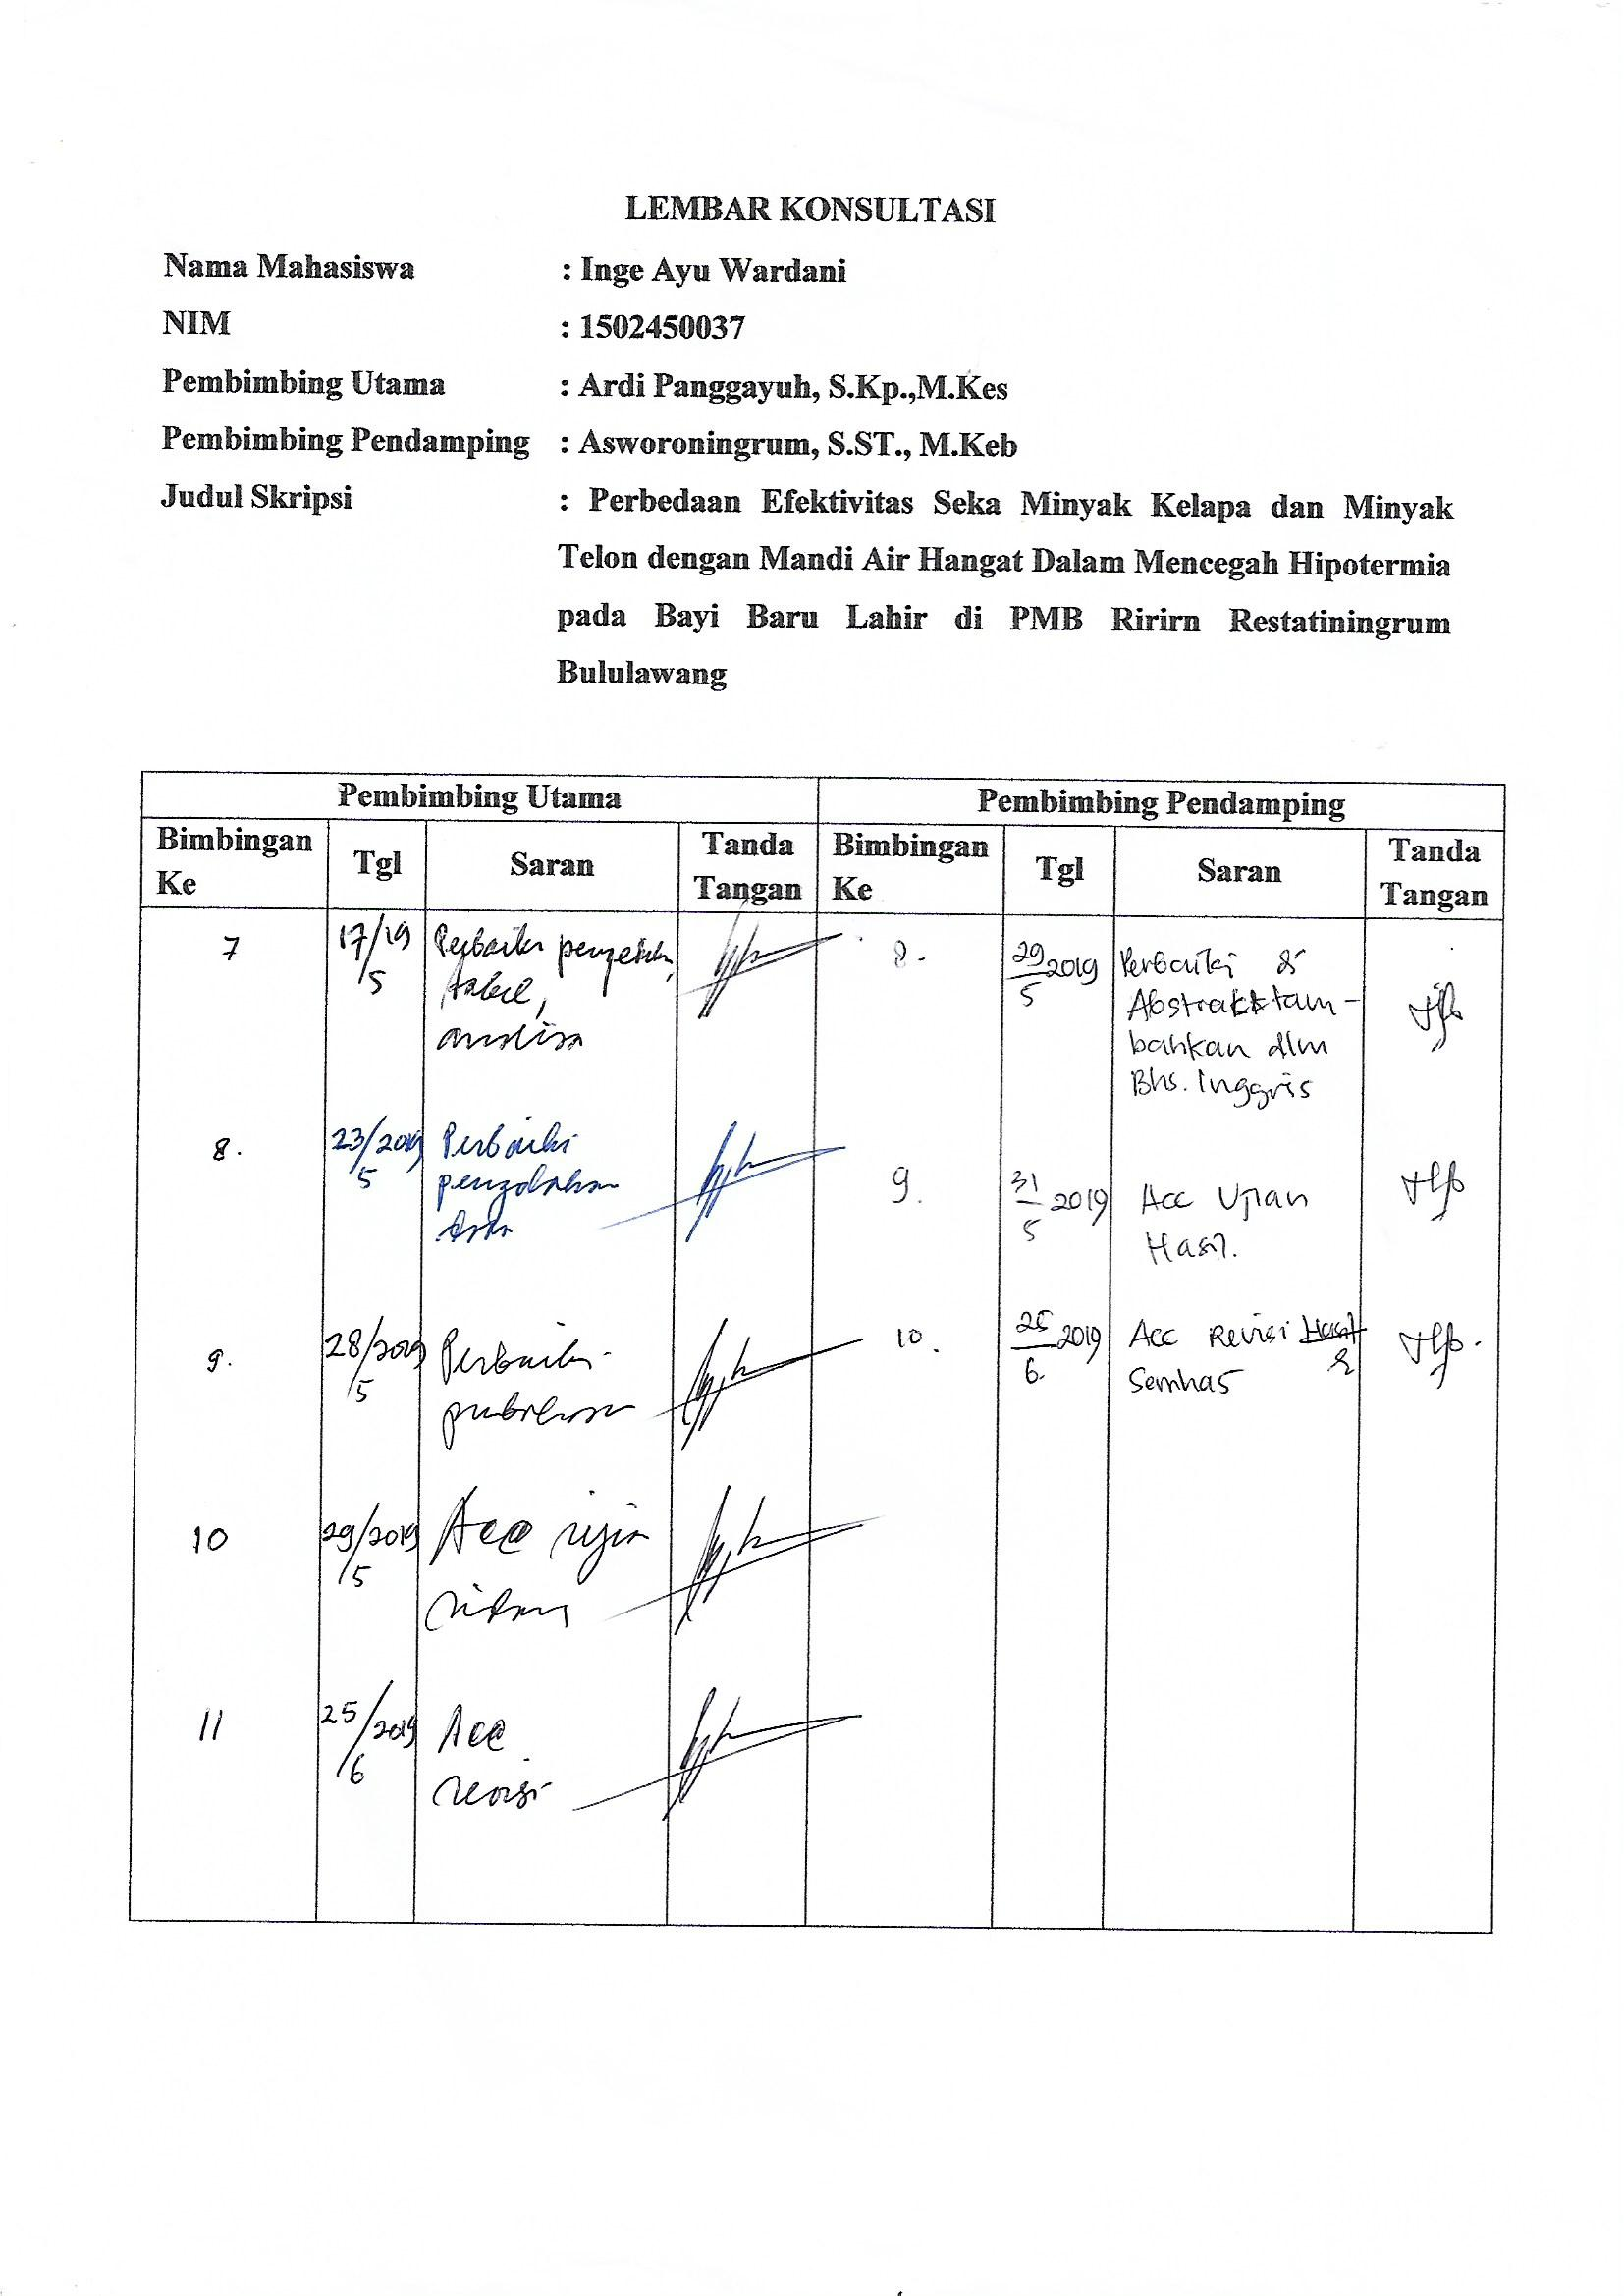 LEMBAR KONSULTASI
Nama Mahasiswa : Inge Ayu Wardani
NIM : 1502450037
Pembimbing Utama : Ardi Panggayuh, S.Kp.,M.Kes
Pembimbing Pendamping : Asworoningrum, S.ST., M.Keb
Judul Skripsi : Perbedaan Efektivitas Seka Minyak Kelapa dan Minyak
Telon dengan Mandi Air Hangat Dalam Mencegah Hipotermia
pada Bayi Baru Lahir di PMB Ririrn Restatiningrum
Bululawang
Pembimbing Utama
Pembimbing Pendamping
Bimbingan
Ke
Tgl
Saran
Tanda
Tangan
Bimbingan
Ke
Tgl
Saran
Tanda
Tangan
7
17/19
5
Perbaiki
tabel,
analisa
8.
23/2019
5
Perbaiki
pengolahan
data
9.
28/2019
5
Perbaiki
10
29/2019
5
Acc ujian
11
25/2019
6
Acc
revisi
8.
29 2019
5
Perbaiki
Abstrak tam-
bahkan dlm
Bhs. Inggris
9.
31 2019
5
Acc Ujian
Hasil.
10.
25 2019
6
Acc Revisi
Semhas